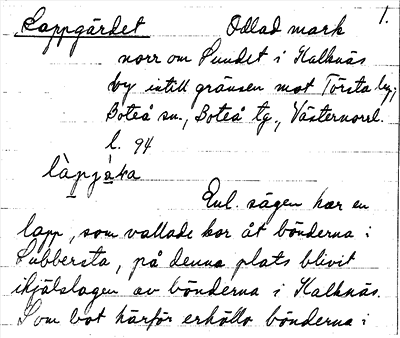 Lappgärdet Odlad mark 1.
norr om Sundet i Kalknäs
by intill gränsen mot Törsta by,
Boteå sn., Boteå tg., Västernorrl.
l. 94
làpjàka
Enl. sägen har en
lapp, som vallade kor åt bönderna i
Subbersta, på denna plats blivit
ihjälslagen av bönderna i Kalknäs.
Som bot härför erhöllo bönderna i